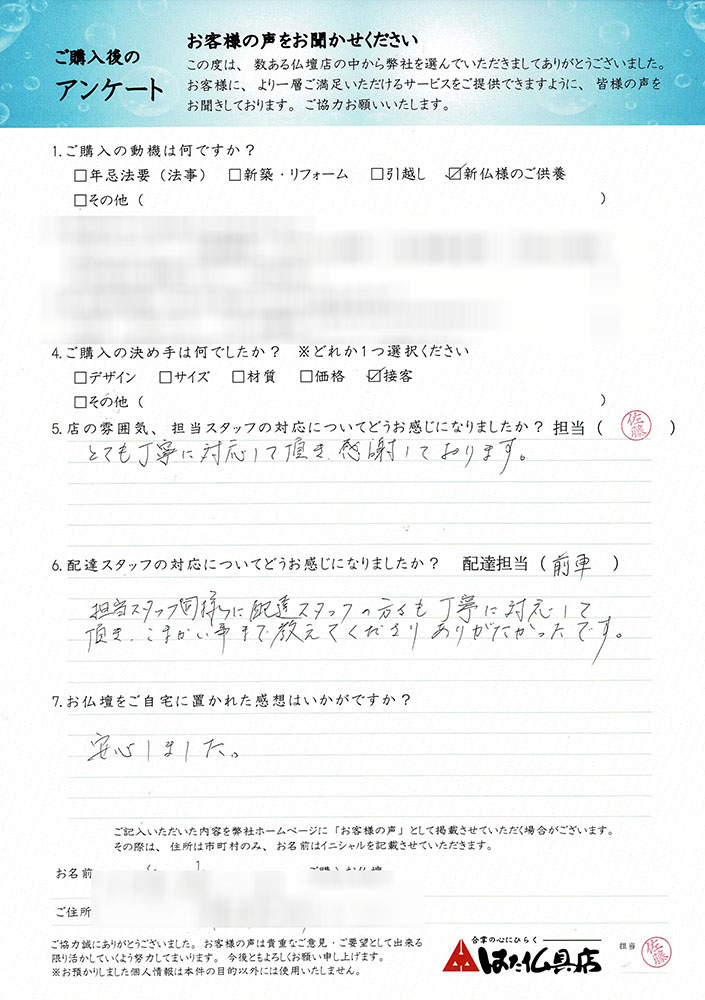 ご購入後の
アンケート
お客様の声をお聞かせください
この度は、数ある仏壇店の中から弊社を選んでいただきましてありがとうございました。
お客様に、より一層ご満足いただけるサービスをご提供できますように、皆様の声を
お聞きしております。ご協力お願いいたします。
1.ご購入の動機は何ですか？
□年忌法要（法事） □新築・リフォーム □引越し ☑新仏様のご供養
□その他（ ）
4.ご購入の決め手は何でしたか？ ※どれか1つ選択ください
□デザイン □サイズ □材質 □価格 ☑接客
□その他（ ）
5.店の雰囲気、担当スタッフの対応についてどうお感じになりましたか？担当（ 佐藤 ）
とても丁寧に対応して頂き、感謝しております。
6.配達スタッフの対応についてどうお感じになりましたか？ 配達担当（前車 ）
担当スタッフ同様に配達スタッフの方も丁寧に対応して
頂き、こまかい事まで教えてくださりありがたかったです。
7.お仏壇をご自宅に置かれた感想はいかがですか？
安心しました。
ご記入いただいた内容を弊社ホームページに「お客様の声」として掲載させていただく場合がございます。
その際は、住所は市町村のみ、お名前はイニシャルを記載させていただきます。
お名前
ご住所
ご協力誠にありがとうございました。お客様の声は貴重なご意見・ご要望として出来る
限り活かしていくよう努力してまいります。今後ともよろしくお願い申し上げます。
※お預かりしました個人情報は本件の目的以外には使用いたしません。
合掌の心にひらく
はた仏具店
担当 佐藤